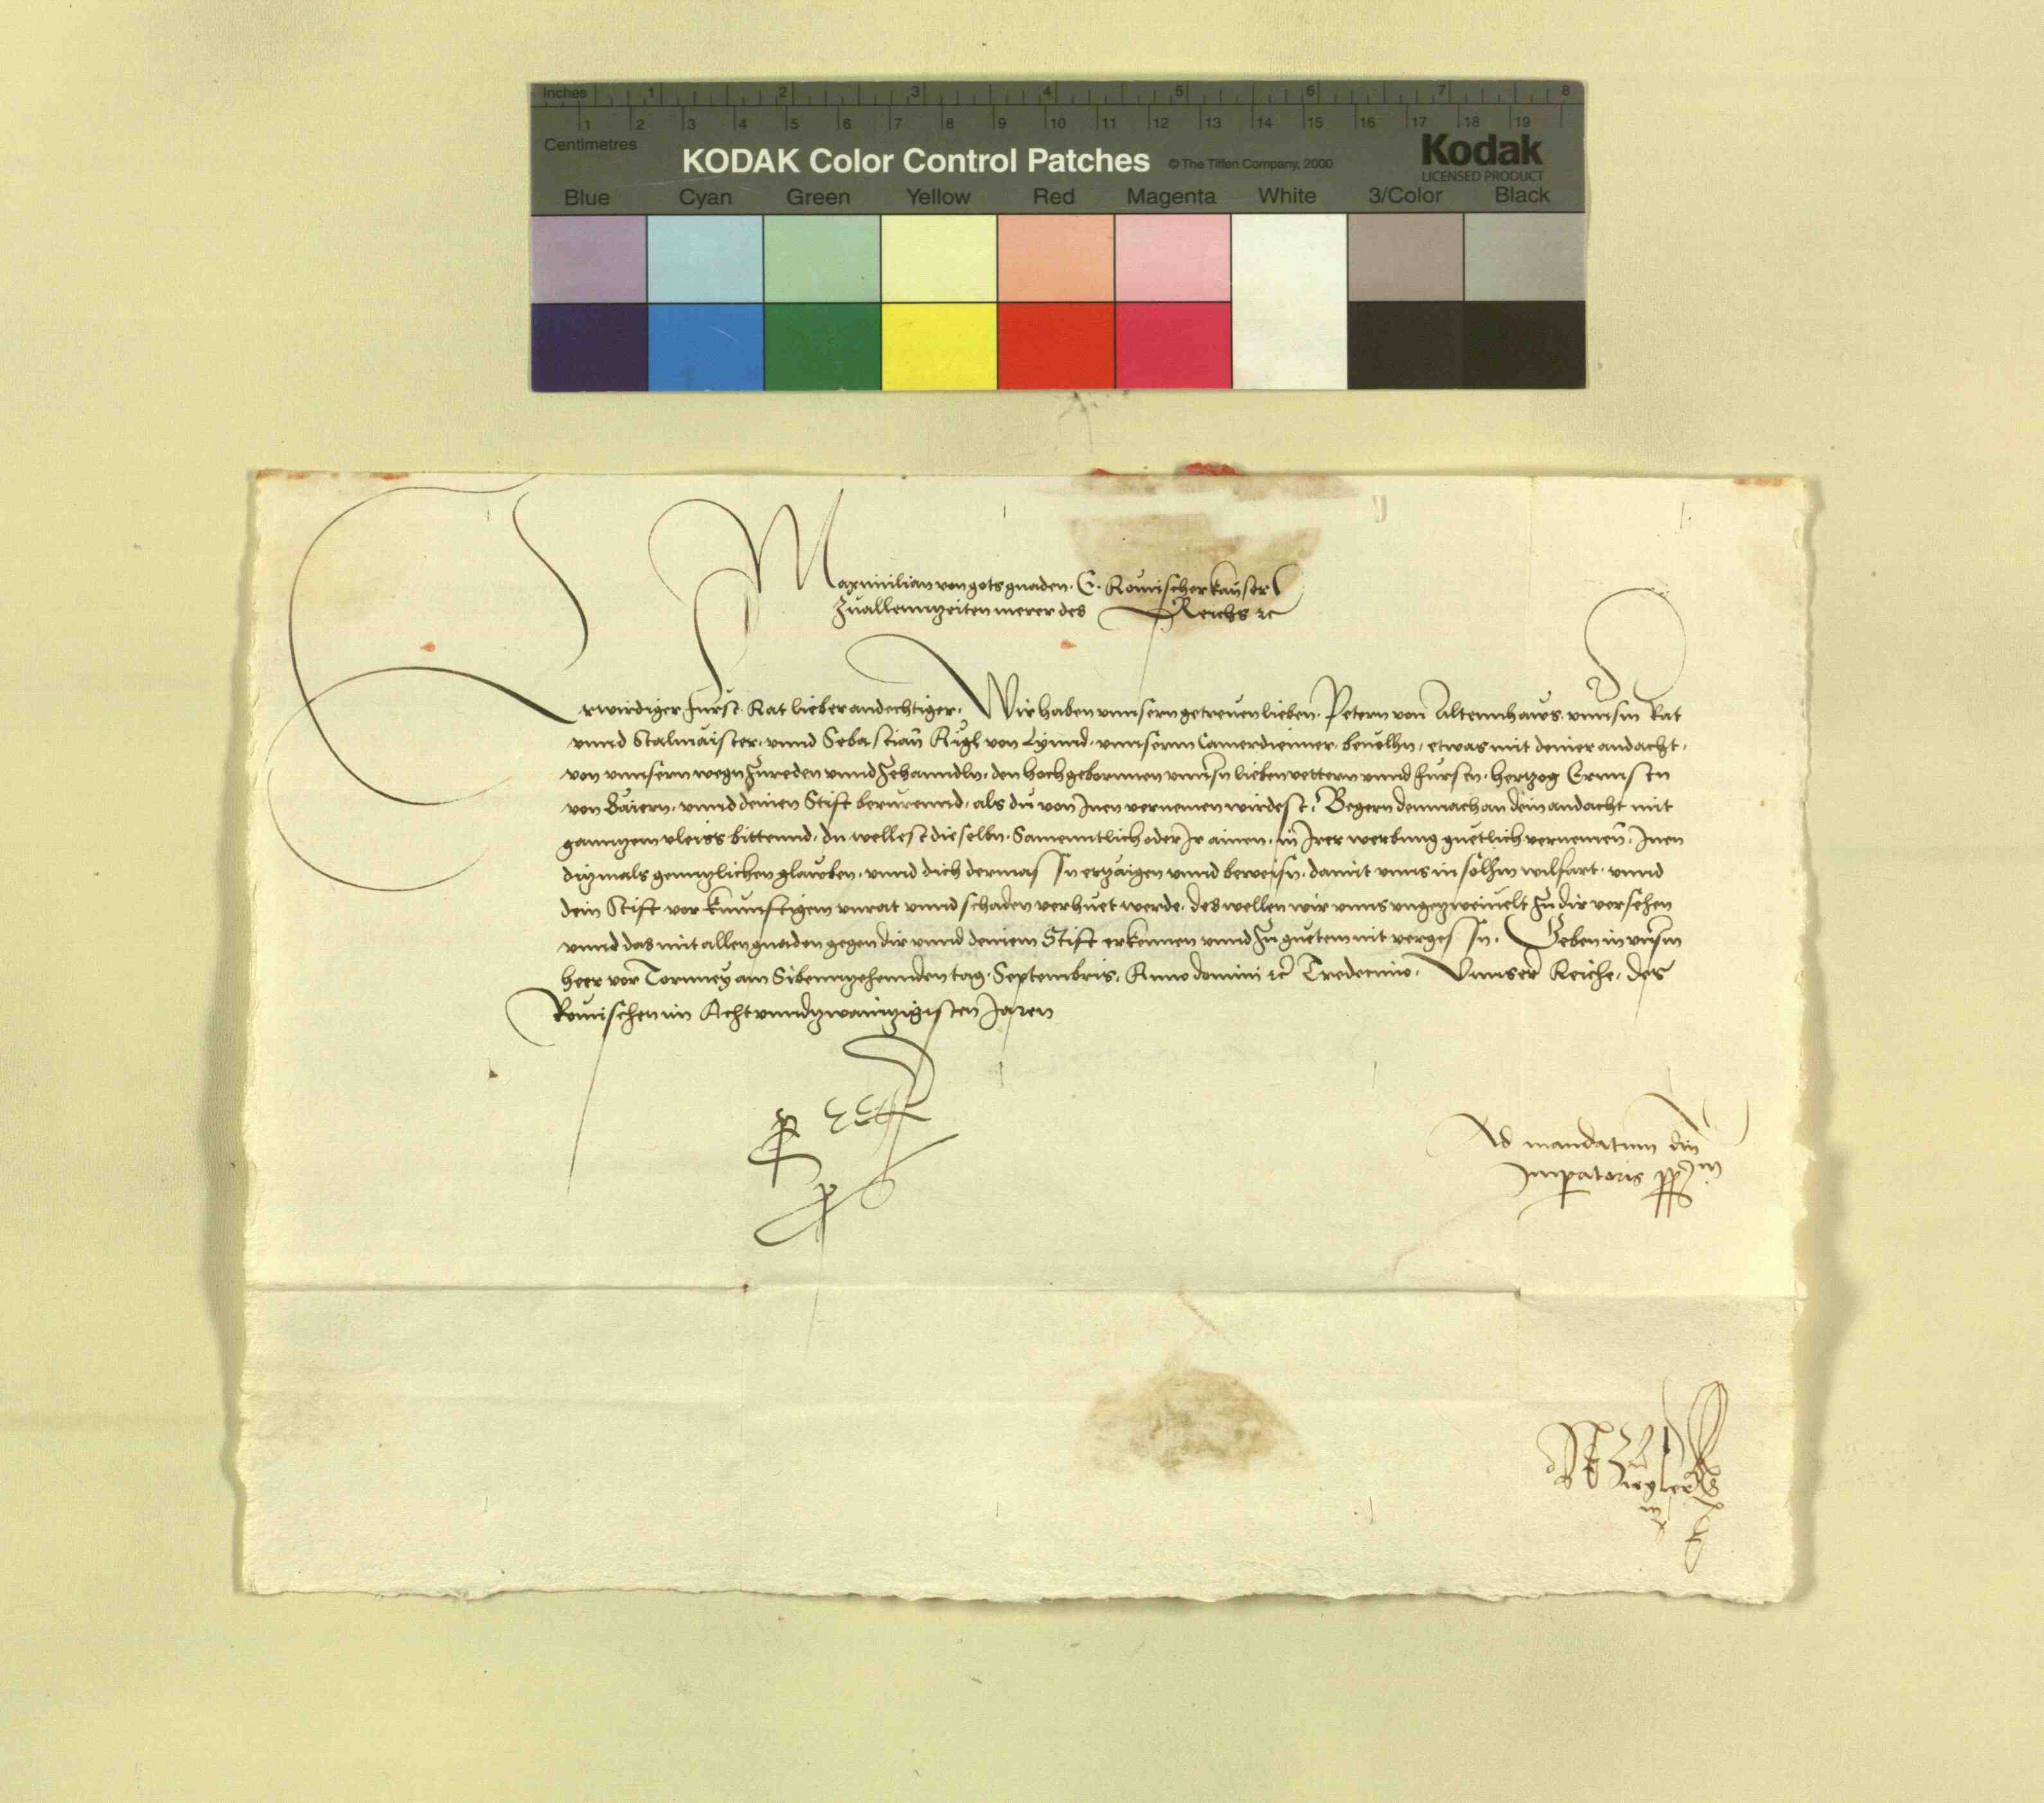 Inches 1 2 3 4 5 6 7 8
1 2 3 4 5 6 7 8 9 10 11 12 13 14 15 16 17 18 19
Centimetres
KODAK Color Control Patches © The Tiffen Company, 2000 Kodak
LICENSED PRODUCT
Blue Cyan Green Yellow Red Magenta White 3/Color Black
Maximilian von gots gnaden. E. Romischer kayser
zu allenntzeiten merer des Reichs ꝛc
Erwirdiger furst Rat lieber andechtiger. Wir haben vnnsern getreuen lieben. Petern von Altennhaws. vnnsm Rat
vnnd Stalmaister. vnnd Sebastian Kugl von Lynnd. vnnserm Camerdienner. beuolhn, etwas mit deiner andacht.
von vnnsern wegn zureden vnnd zehanndln. den hochgebornnen vnnsn lieben vettern vnnd fursten. hertzog Ernnstn
von Baiern. vnnd deinen Stift berurennd. als du von Inen vernemen wirdest. Begern demnach an dein andacht mit
ganntzem vleiss bittennd. du wellest dieselbn. Samenntlich oder Ir ainen. in Irer werbung guetlich vernemen. Inen
ditzmals genntzlichen glauben. vnnd dich dermassn ertzaigen vnnd beweisn. damit vnns in solhm wilfart. vnnd
dein Stift vor kunnftigem vnrat vnnd schaden verhuet werde. des wellen wir vnns vngezweiuelt zu dir versehen
vnnd das mit allen gnaden gegen dir vnnd deinem Stift erkennen vnnd zu guetem nit vergessn. Geben in vnsm
heer vor Tornney am Sibenntzehennden tag. Septembris. Anno domini ꝛc Tredecimo. Vnnser Reiche. des
Romischen im Acht vnndzwaintzigisten Jaren
Ad mandatum dni
Imperatoris pp m
Ziegler